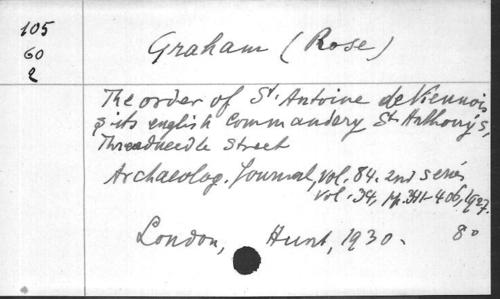 105
60
2
Graham (Rose)
The order of St. Antoine de Viennois
& its english Commandery St Anthony's,
Threadneedle Street
Archaeolog. Journal, vol. 84. 2nd series
vol. 34, pp. 341-406, 1927.
London, Hunt, 1930. 8°